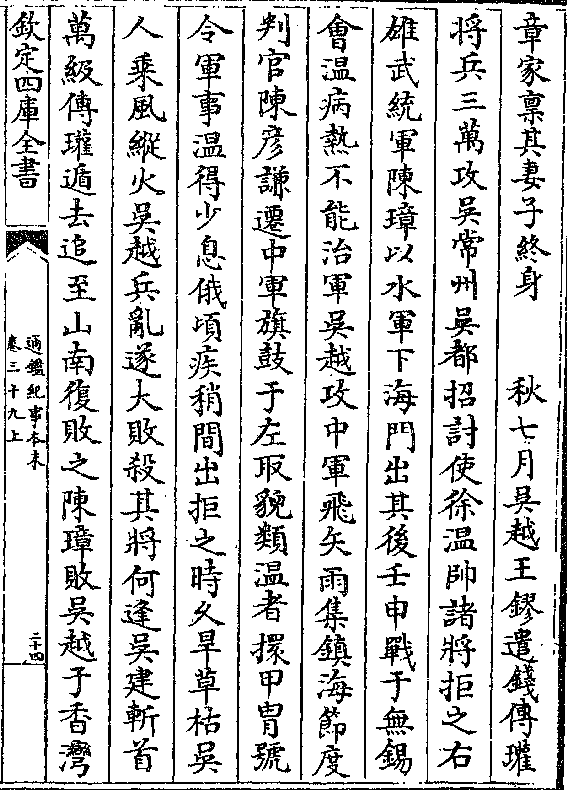 章家禀其妻子終身　　秋七月吳越王鏐遣錢傳瓘
將兵三萬攻吳常州吳都招討使徐溫帥諸將拒之右
雄武統軍陳璋以水軍下海門出其後壬申戰于無錫
會温病熱不能治軍吳越攻中軍飛矢雨集鎮海節度
判官陳彦謙遷中軍旗鼓于左取貌類温者擐甲胄號
令軍事温得少息俄頃疾稍間出拒之時久旱草枯吳
人乗風縱火吳越兵亂遂大敗殺其將何逢吳建斬首
萬級傳瓘遁去追至山南復敗之陳璋敗吳越于香灣
欽定四庫全書
通鑑紀事本末
卷三十九上
二十四